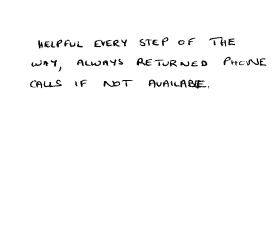 HELPFUL EVERY STEP OF THE
WAY, ALWAYS RETURNED PHONE
CALLS IF NOT AVAILABLE.